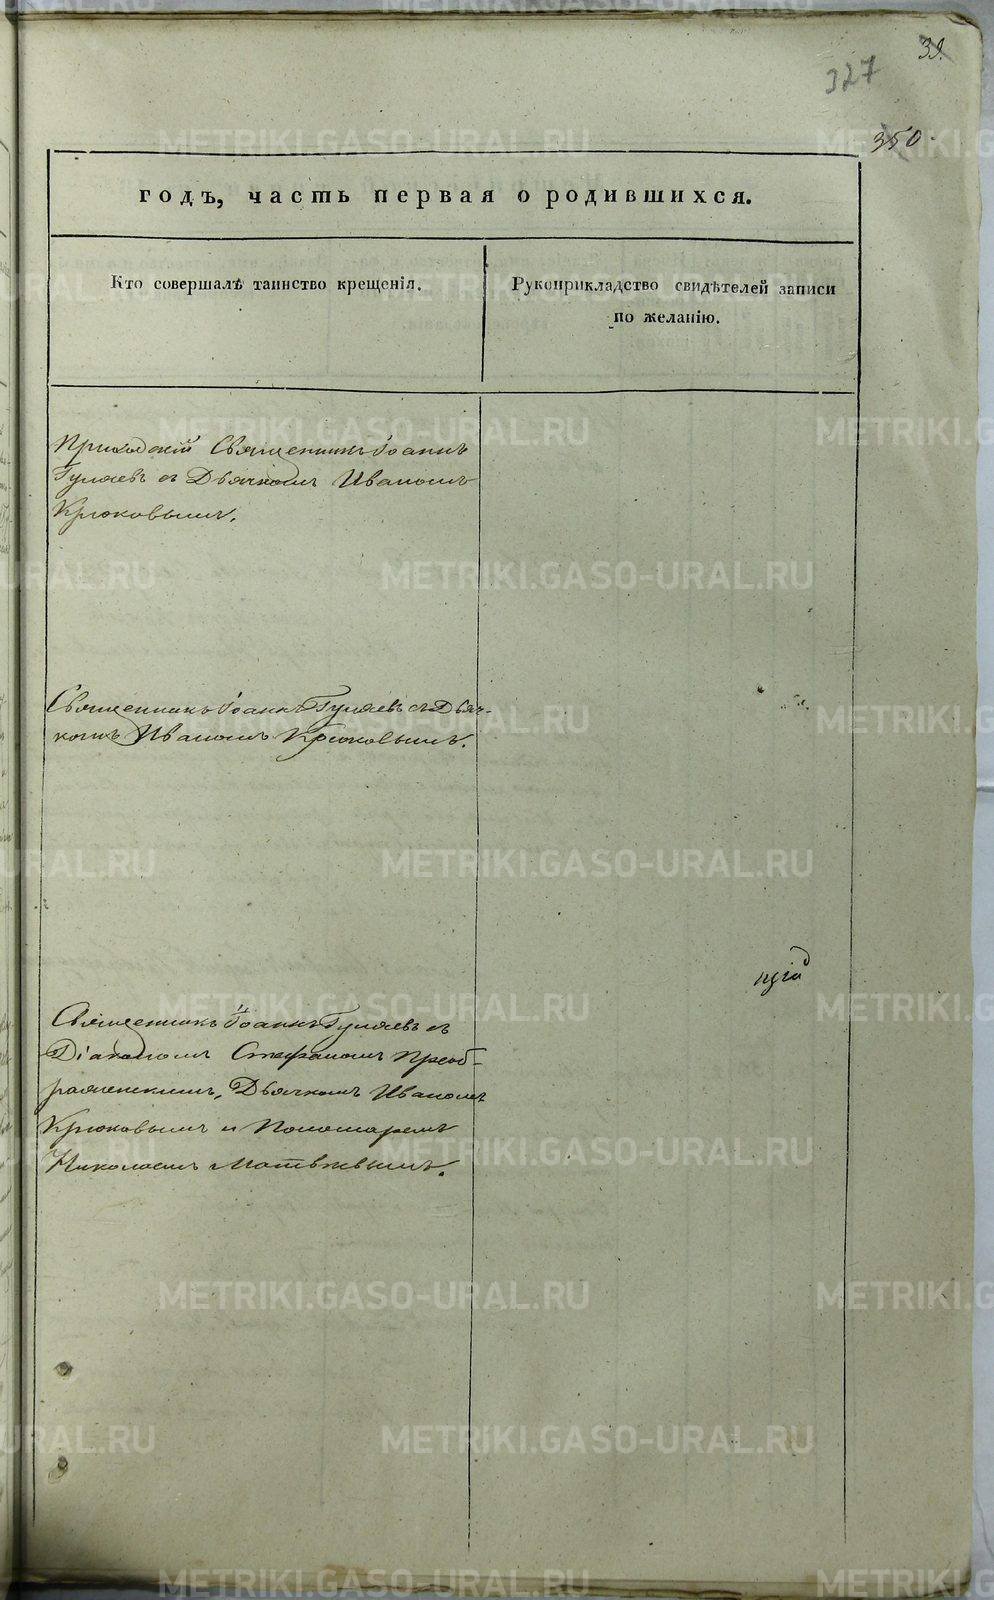 39.
327
350.
годъ, часть первая о родившихся.
Кто совершалъ таинство крещенія.
Рукоприкладство свидѣтелей записи
по желанію.
Приходскій Священникъ Іоаннъ
Гуляевъ съ Дьячкомъ Иваномъ
Крюковымъ.
Священникъ Іоаннъ Гуляевъ съ Дьяч-
комъ Иваномъ Крюковымъ.
Священникъ Іоаннъ Гуляевъ съ
Діакономъ Стефаномъ Преоб-
раженскимъ, Дьячкомъ Иваномъ
Крюковымъ и Пономаремъ
Николаемъ Матвѣевымъ.
METRIKI.GASO-URAL.RU